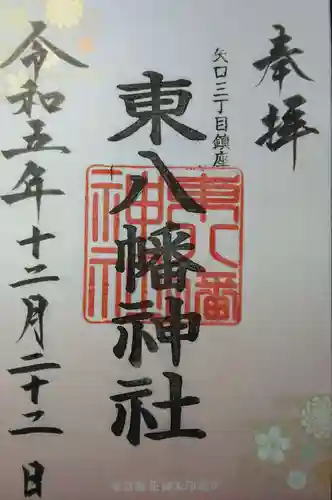 奉拝
矢口三丁目鎮座
東八幡神社
東八幡
神社
令和五年十二月二十二日